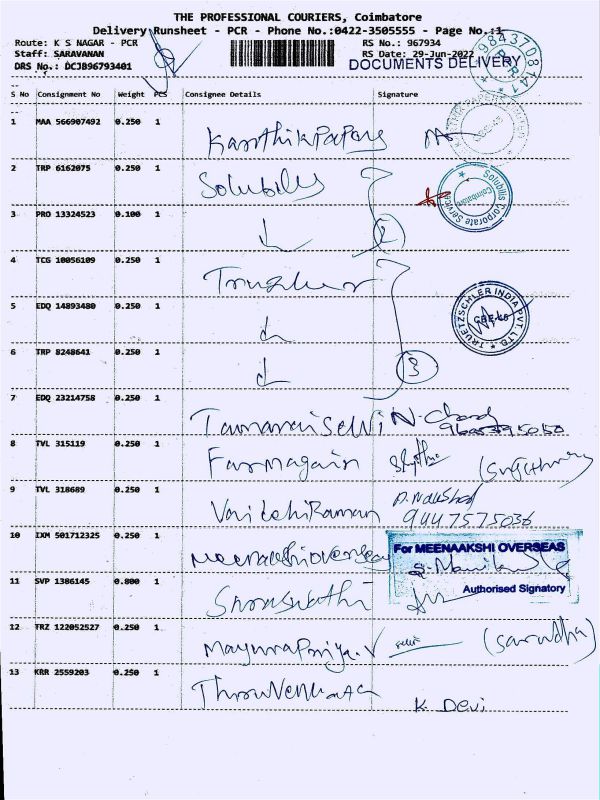 THE PROFESSIONAL COURIERS, Coimbatore
Delivery Runsheet - PCR - Phone No.:0422-3505555 - Page No.:1
Route: K S NAGAR - PCR RS No.: 967934
Staff: SARAVANAN RS Date: 29-Jun-2022
DRS No.: DCJB96793401 DOCUMENTS DELIVERY
S No Consignment No Weight PCS Consignee Details Signature
1 MAA 566907492 0.250 1
2 TRP 6162075 0.250 1 Solubilis
Solubilis Corporate Services Coimbatore
3 PRO 13324523 0.100 1
2
4 TCG 10056109 0.250 1
5 EDQ 14893480 0.250 1
TRUETZSCHLER INDIA PVT. LTD. CBE-45
6 TRP 8248641 0.250 1
3
7 EDQ 23214758 0.250 1 N.
8 TVL 315119 0.250 1
9 TVL 318689 0.250 1 Vaitehi Raman
9447575036
10 IXM 501712325 0.250 1 Meenakshi Overseas
For MEENAAKSHI OVERSEAS
Authorised Signatory
11 SVP 1386145 0.800 1 Saraswathi
12 TRZ 122052527 0.250 1 Mayurapriya.V
13 KRR 2559203 0.250 1
K Devi